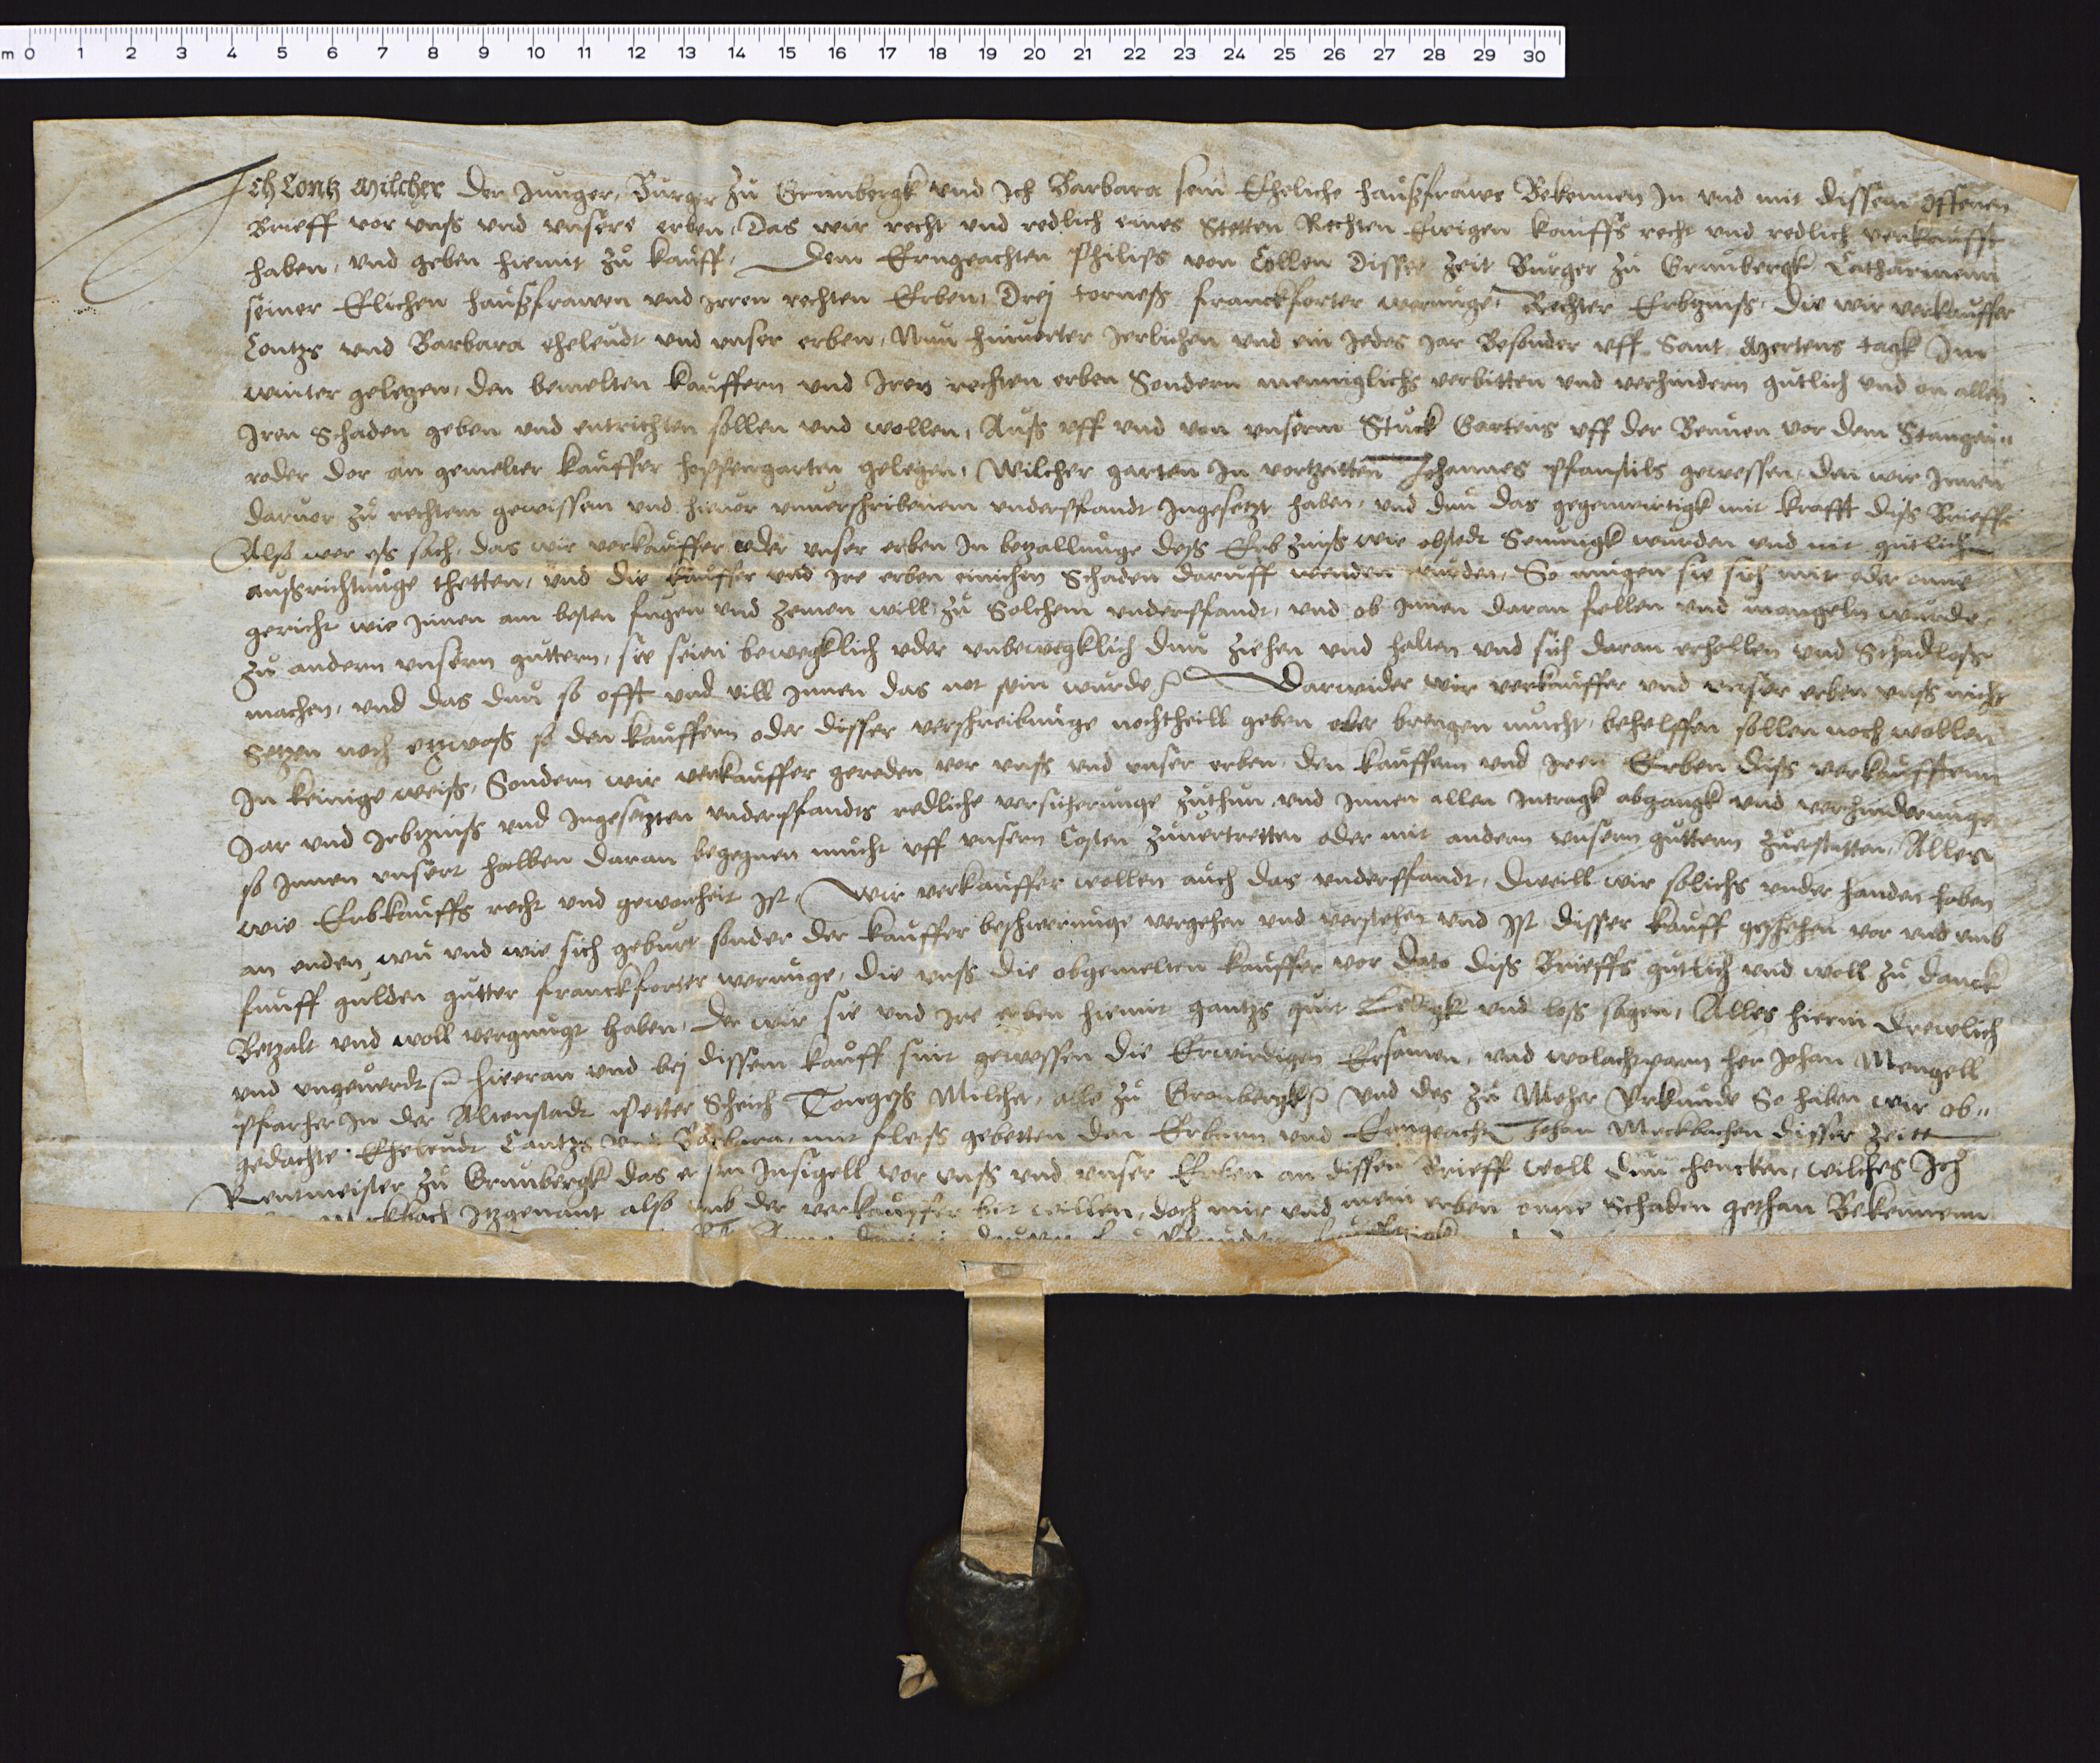 m 0 1 2 3 4 5 6 7 8 9 10 11 12 13 14 15 16 17 18 19 20 21 22 23 24 25 26 27 28 29 30
Ich Contz Milcher der Junger, Burger zu Grunbergk vnd Ich Barbara sein Eheliche haußfrawe Bekennen In vnd mit dissem offenen
Brieff vor vnß vnd vnsere erben, Das wir recht vnd redlich eines Stetten Rechten Ewigen kauffs recht vnd redlich verkaufft
haben, vnd geben hiemit zu kauff, Dem Erngeachten Philips von Collen Disser zeit Burger zu Grunbergk Catharinenn
seiner Elichen haußfrawen vnd Jrren rechten Erben, Drej torneß franckforter werunge, Rechter Erbzinß, Die wir verkauffer
Contzs vnd Barbara eheleudt vnd vnser erben, Nun hinvorter Jerlichen vnd ein Jedes Jar Besonder vff Sant Mertens tagk Jm
winter gelegen, den bemelten kauffern vnd Jren rechten erben Sondern menniglichs verbitten vnd verhindern gutlich vnd on allen
Jren Schaden geben vnd entrichten sollen vnd wollen, Auß vff vnd von vnserm Stuck Gartens vff der Beunen vor dem Stangen"
roder dor an gemelter kauffer hopffengarten gelegen, Wilcher garten In vortzeitten Johannes Pfanstils gewessen, den wir Jnnen
darvor zu rechtem gewissem vnd hievor vnverschribenem vnderpfandt Ingesetzt haben, vnd dun das gegenwirtigk mit krafft diß Brieffs
Also wer eß sach, das wir verkauffer oder vnser erben In betzallunge deß Erbzinß wie obstedt Seumigk wurden vnd nit gutlich
außrichtunge thetten, vnd die kauffer vnd Jre erben einichen Schaden daruff wenden wurden, So mugen sie sich mit oder onne
gericht wie Jnnen am besten fugen vnd zemen will, zu Solchem vnderpfandt, vnd ob Jnnen daran fellen vnd mangeln wurde,
zu andern vnsern guttern, sie seien bewegklich oder vnbewegklich dun ziehen vnd halten vnd sich daran erhollen vnd Schadloß
machen, vnd das dun so offt vnd vill Jnnen das not sein wurde Darwider wir verkauffer vnd vnser erben vnß nicht
Setzen noch etzwaß so den kauffern oder disser verschreibunge nochtheill geben oder brengen mucht, behelffen sollen noch wollen
In keinige weiß, Sondern wir verkauffer gereden vor vnß vnd vnser erben, den kauffern vnd Jren Erben diß verkaufftenn
Jar vnd Jrbtzinß vnd Ingesetzten vnderpfandts redliche versicherunge zuthun, vnd Jnnen allen Intragk abgangk vnd verhinderunge
so Jnnen vnsert halben daran begegnen mucht vff vnsern Costen zuvertretten oder mit andern vnsern guttern zuerstatten, Alles
wie Erbkauffs recht vnd gewonheit ist, Wir verkauffer wollen auch das vnderpfandt, dweill wir solichs vnder handen haben
an enden wu vnd wie sich geburt sonder der kauffer beschwerunge vergehen vnd verstehen vnd Ist disser kauff geschehen vor vnd vmb
funff gulden gutter franckforter werunge, die vnß die obgemelten kauffer vor dato diß Brieffs gutlich vnd woll zu danck
Betzalt vnd woll vergnugt haben, Der wir sie vnd Jre erben hiemit gantzs quit Ledigk vnd loß sagen, Alles hierin drewlich
vnd vngeverdt hieran vnd bej dissem kauff sint gewessen die Erwirdigen Ersamen, vnd wolachtparn her Johan Mengell
Pfarher In der Altenstadt Peter Scheich Tongeß Milcher, alle zu Gronbergk vnd des zu Meher Vrkunde So haben wir ob"
gedachte Eheleudt Contzs vnd Barbara, mit fleiß gebetten den Erbarn vnd Erngeacht Johan Meckbachen disser zeitt
Rentmeister zu Grunbergk das er sin Insigell vor vnß vnd vnser Erben an dissen Brieff woll dun hencken, wilches Ich
Meckbach Itzgenant also vmb der verkauffer bit willen, doch mir vnd mein erben onne Schaden gethan Bekennenn